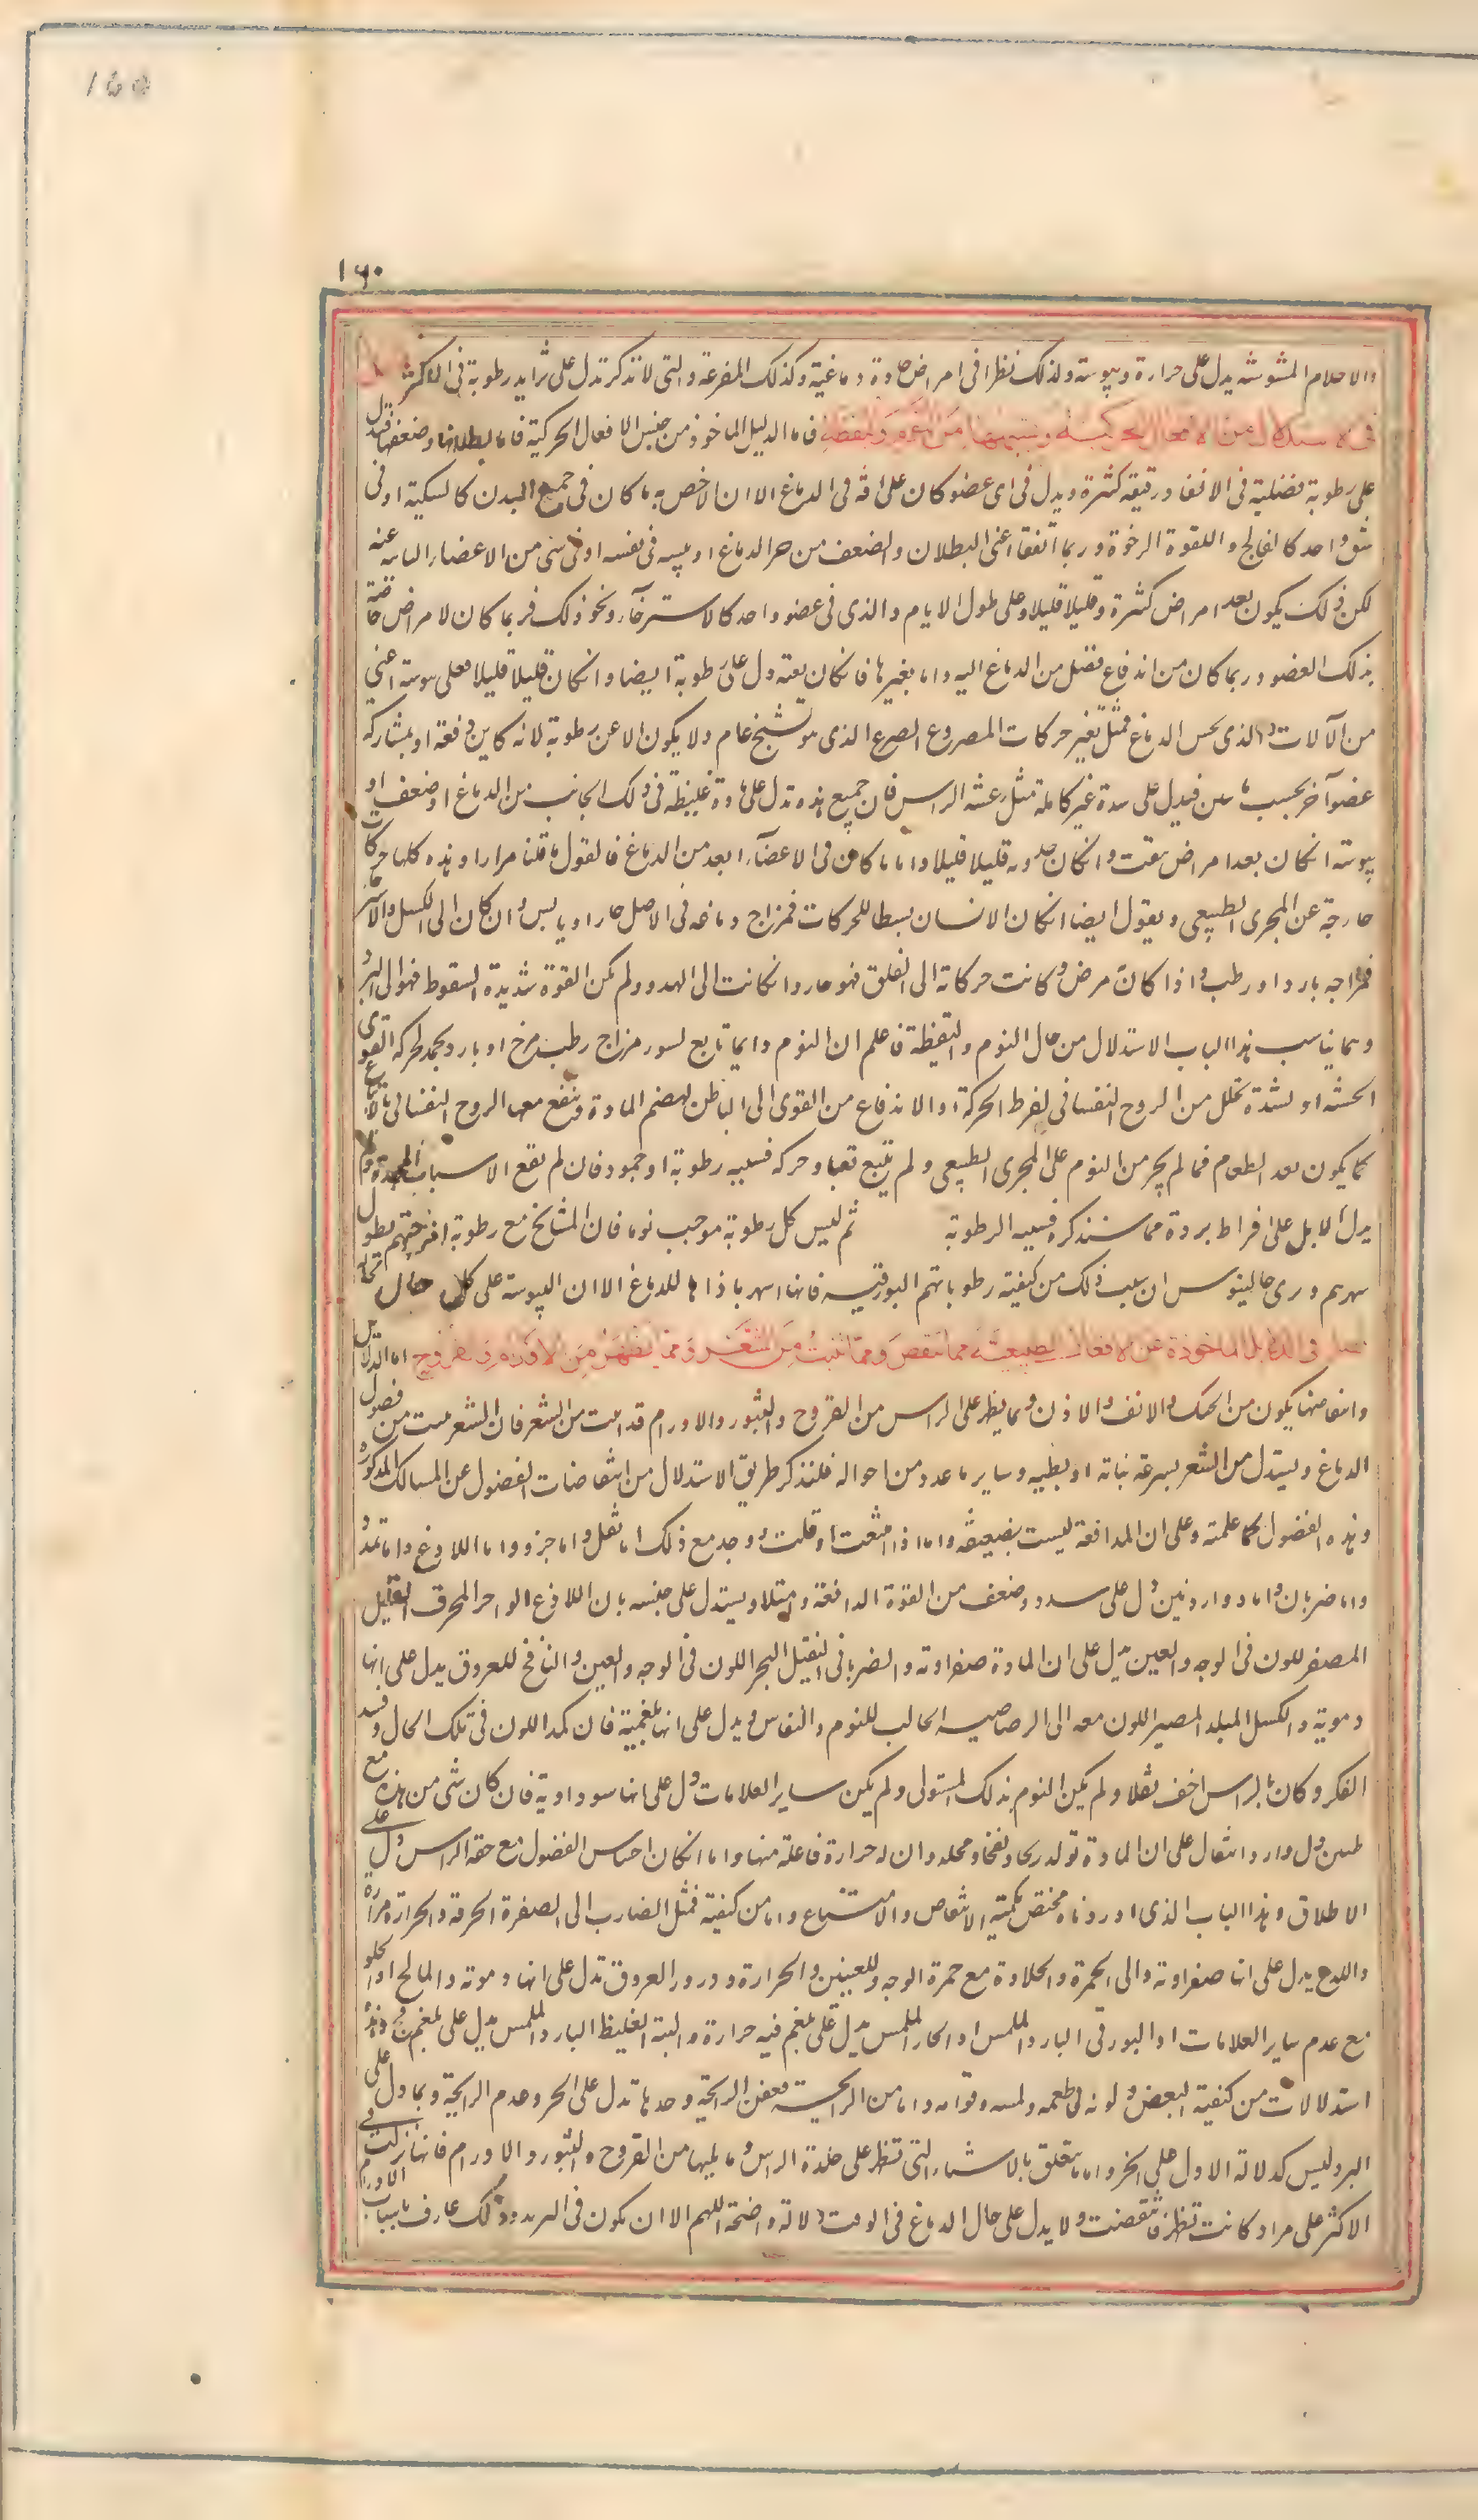 155
١٦٠
والاحلام المشوشه يدل على حرارة ويبوسته ولذلك نظرا فى امراض حادة دماغية وكذلك المفزعة والتى لا تذكر تدل على برد ورطوبة فى الاكثر فصل
فى الاستدلال من الافعال الحركية وبتبعها من النوم واليقظة فاما الدليل الماخوذ من جنس الافعال الحركية فاما بطلانها وضعفها فيدل
على رطوبة فضلية فى الانفا ورقيقه كثيرة ويدل فى اى عضو كان على افة فى الدماغ الا ان الاخص به ما كان فى جميع البدن كالسكتة او فى
شق واحد كالفالج واللقوة الرخوة وربما اتفقا اعنى البطلان والضعف من حر الدماغ او يبسه فى نفسه او فى شى من الاعضا النابته عنه
لكن ذلك يكون بعد امراض كثيرة وقليلا قليلا وعلى طول الايام والذى فى عضو واحد كالاسترخآ ونحو ذلك فربما كان لامراض خاصة
بذلك العضو وربما كان من اندفاع فضل من الدماغ اليه واما تغيرها فان كان بغته دل على رطوبة ايضا وان كان قليلا قليلا فعلى يبوسته اعنى
من الآلات والذى يحس الدماغ فمثل تغير حركات المصروع الصرع الذى هو تشنج عام ولا يكون الا عن رطوبة لانه كاين دفعة او بمشاركه
عضو آخر بحسب ما بين فيدل على سدة غير كاملة مثل رعشة الراس فان جميع هذه تدل على مادة غليظة فى ذلك الجانب من الدماغ او ضعف او
يبوسته ان كان بعد امراض سبقت وان كان حدوثه قليلا قليلا واما ما كان فى الاعضآء ابعد من الدماغ فالقول ما قلنا مرارا وهذه كلها حركات
خارجة عن المجرى الطبيعى ويقول ايضا ان كان الانسان نسيطا للحركات فمزاج دماغه فى الاصل حار او يابس وان كان الى الكسل والاسترخآ
فمزاجه بارد او رطب واذا كان مرض وكانت حركاته الى القلق فهو حار وان كانت الى الهدو ولم يكن القوة شديدة السقوط فهو الى البرد
ومما يناسب هذا الباب الاستدلال من حال النوم واليقظة فاعلم ان النوم دايما تابع لسوء مزاج رطب مرخ او بارد يجمد لحركه القوى
الحسية او لشدة تحلل من الروح النفسانى لفرط الحركة او الاندفاع من القوى الى الباطن لهضم المادة ويندفع معها الروح النفسانى بالاتباع
كما يكون بعد الطعام فما لم يجر من النوم على المجرى الطبيعى ولم يتبع تعبا وحركه فسببه رطوبة او جمود فان لم تقع الاسباب المجمدة ولم
يدل الدلايل على افراط برودة مما سنذكره فسببه الرطوبة ثم ليس كل رطوبة موجب نوما فان المشايخ مع رطوبة امزجتهم يطول
سهرهم ويرى جالينوس ان سبب ذلك من كيفية رطوباتهم البورقيه فانها اسهر باذاها للدماغ الا ان اليبوسته على كل حال
فصل فى الدلايل الماخوذة عن الافعال الطبيعية مما تنقص ومما تنبت من الشعر ومما يظهر من الاورام والقروح اما الدلايل
وانتفاضها يكون من الحنك والانف والاذن ومما يظهر على الراس من القروح والبثور والاورام قد انبت من الشعر فان الشعر ينبت من فضول
الدماغ ويستدل من الشعر بسرعة نباته او بطئه وساير ما عدد من احواله فلنذكر طريق الاستدلال من انتفاضات الفضول عن المسالك المذكورة
وهذه الفضول كما علمته وعلى ان المدافعة ليست بضعيفه واما اذا امتنعت او قلت ووجد مع ذلك اما ثقل واما وخز واما اللادغ واما تمدد
واما ضربان واما دوار وطنين دل على سدد وضعف من القوة الدافعة وامتلا ويستدل على جنسه بان اللاذع الواخز المحرق القليل
المصفر للون فى الوجه والعين يدل على ان المادة صفراويه والضربانى الثقيل المحمر اللون فى الوجه والعين والنافخ للعروق يدل على انها
دموية والكسل المبلد المصير اللون معه الى الرصاصيه الجالب للنوم والنعاس ويدل على انها بلغمية فان كمد اللون فى تلك الحال وفسد
الفكر وكان بالراس اخف ثقلا ولم يكن النوم بذلك المستولى ولم يكن ساير العلامات دل على انها سوداوية فان كان شى من هذه مع
طنين ودوار وانتقال على ان المادة تولد ريحا ونفخا ومحله وان له حرارة فاعلة منها واما ان كان احباس الفضول مع خفة الراس دل على
الاطلاق وهذا الباب الذى اوردناه مختص بكمية الانتفاض والامتناع واما من كيفية فمثل الضارب الى الصفرة الحرقة والحرارة مرارة
واللدغ يدل على انها صفراويه والى الحمرة والحلاوة مع حمرة الوجه والعينين والحرارة ودرور العروق تدل على انها دمويه والمالح او الحلو
مع عدم ساير العلامات او البورقى البارد الملمس او الحار الملمس يدل على بلغم فيه حرارة والتفه الغليظ البارد الملمس يدل على بلغم وهذه
استدلالات من كيفية البعض ولونه فى طعمه ولمسه وقوامه واما من الرايحه فعفن الرايحة وحدتها تدل على الحر وعدم الرايحة ربما دل على
البرد وليس كدلالة الاول على الحر واما ما يتعلق بالاشياء التى تظهر على جلدة الراس وما يليها من القروح والبثور والاورام فانها تدل فى
الاكثر على مواد كانت تنظر فانتقضت ولا يدل على حال الدماغ فى الوقت دلالة واضحة اللهم الا ان يكون فى التزيد وذلك عارف باسباب الاورام